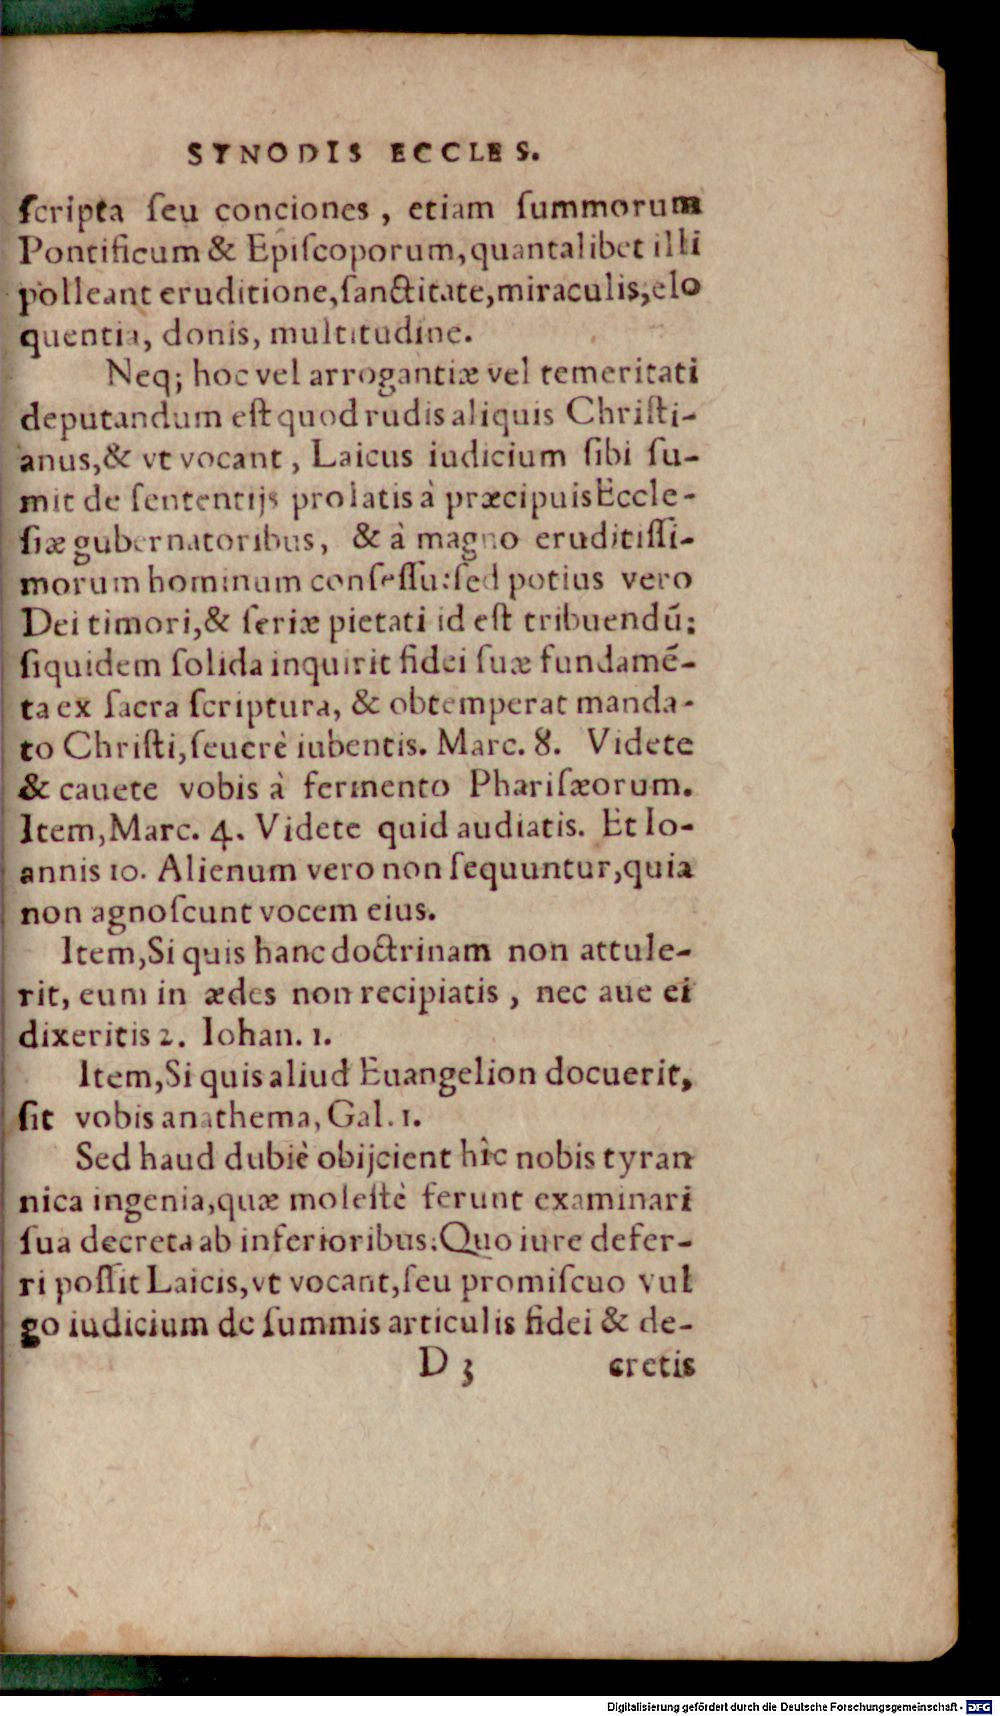 SYNODIS ECCLES.
ſcripta ſeu conciones, etiam ſummorum
Pontificum & Epiſcoporum, quantalibet illi
polleant eruditione, ſanctitate, miraculis, elo
quentia, donis, multitudine.
Neq; hoc vel arrogantiæ vel temeritati
deputandum eſt quod rudis aliquis Chriſti-
anus, & vt vocant, Laicus iudicium ſibi ſu-
mit de ſententijs prolatis à præcipuis Eccle-
ſiæ gubernatoribus, & à magno eruditiſſi-
morum hominum conſeſſu: ſed potius vero
Dei timori, & ſeriæ pietati id eſt tribuendū:
ſiquidem ſolida inquirit fidei ſuæ fundamē-
ta ex ſacra ſcriptura, & obtemperat manda-
to Chriſti, ſeuerè iubentis. Marc. 8. Videte
& cauete vobis à fermento Phariſæorum.
Item, Marc. 4. Videte quid audiatis. Et Io-
annis 10. Alienum vero non ſequuntur, quia
non agnoſcunt vocem eius.
Item, Si quis hanc doctrinam non attule-
rit, eum in ædes non recipiatis, nec aue ei
dixeritis 2. Iohan. 1.
Item, Si quis aliud Euangelion docuerit,
ſit vobis anathema, Gal. 1.
Sed haud dubiè obijcient hîc nobis tyran
nica ingenia, quæ moleſtè ferunt examinari
ſua decreta ab inferioribus: Quo iure defer-
ri poſſit Laicis, vt vocant, ſeu promiſcuo vul
go iudicium de ſummis articulis fidei & de-
D 3 cretis
Digitalisierung gefördert durch die Deutsche Forschungsgemeinschaft - DFG